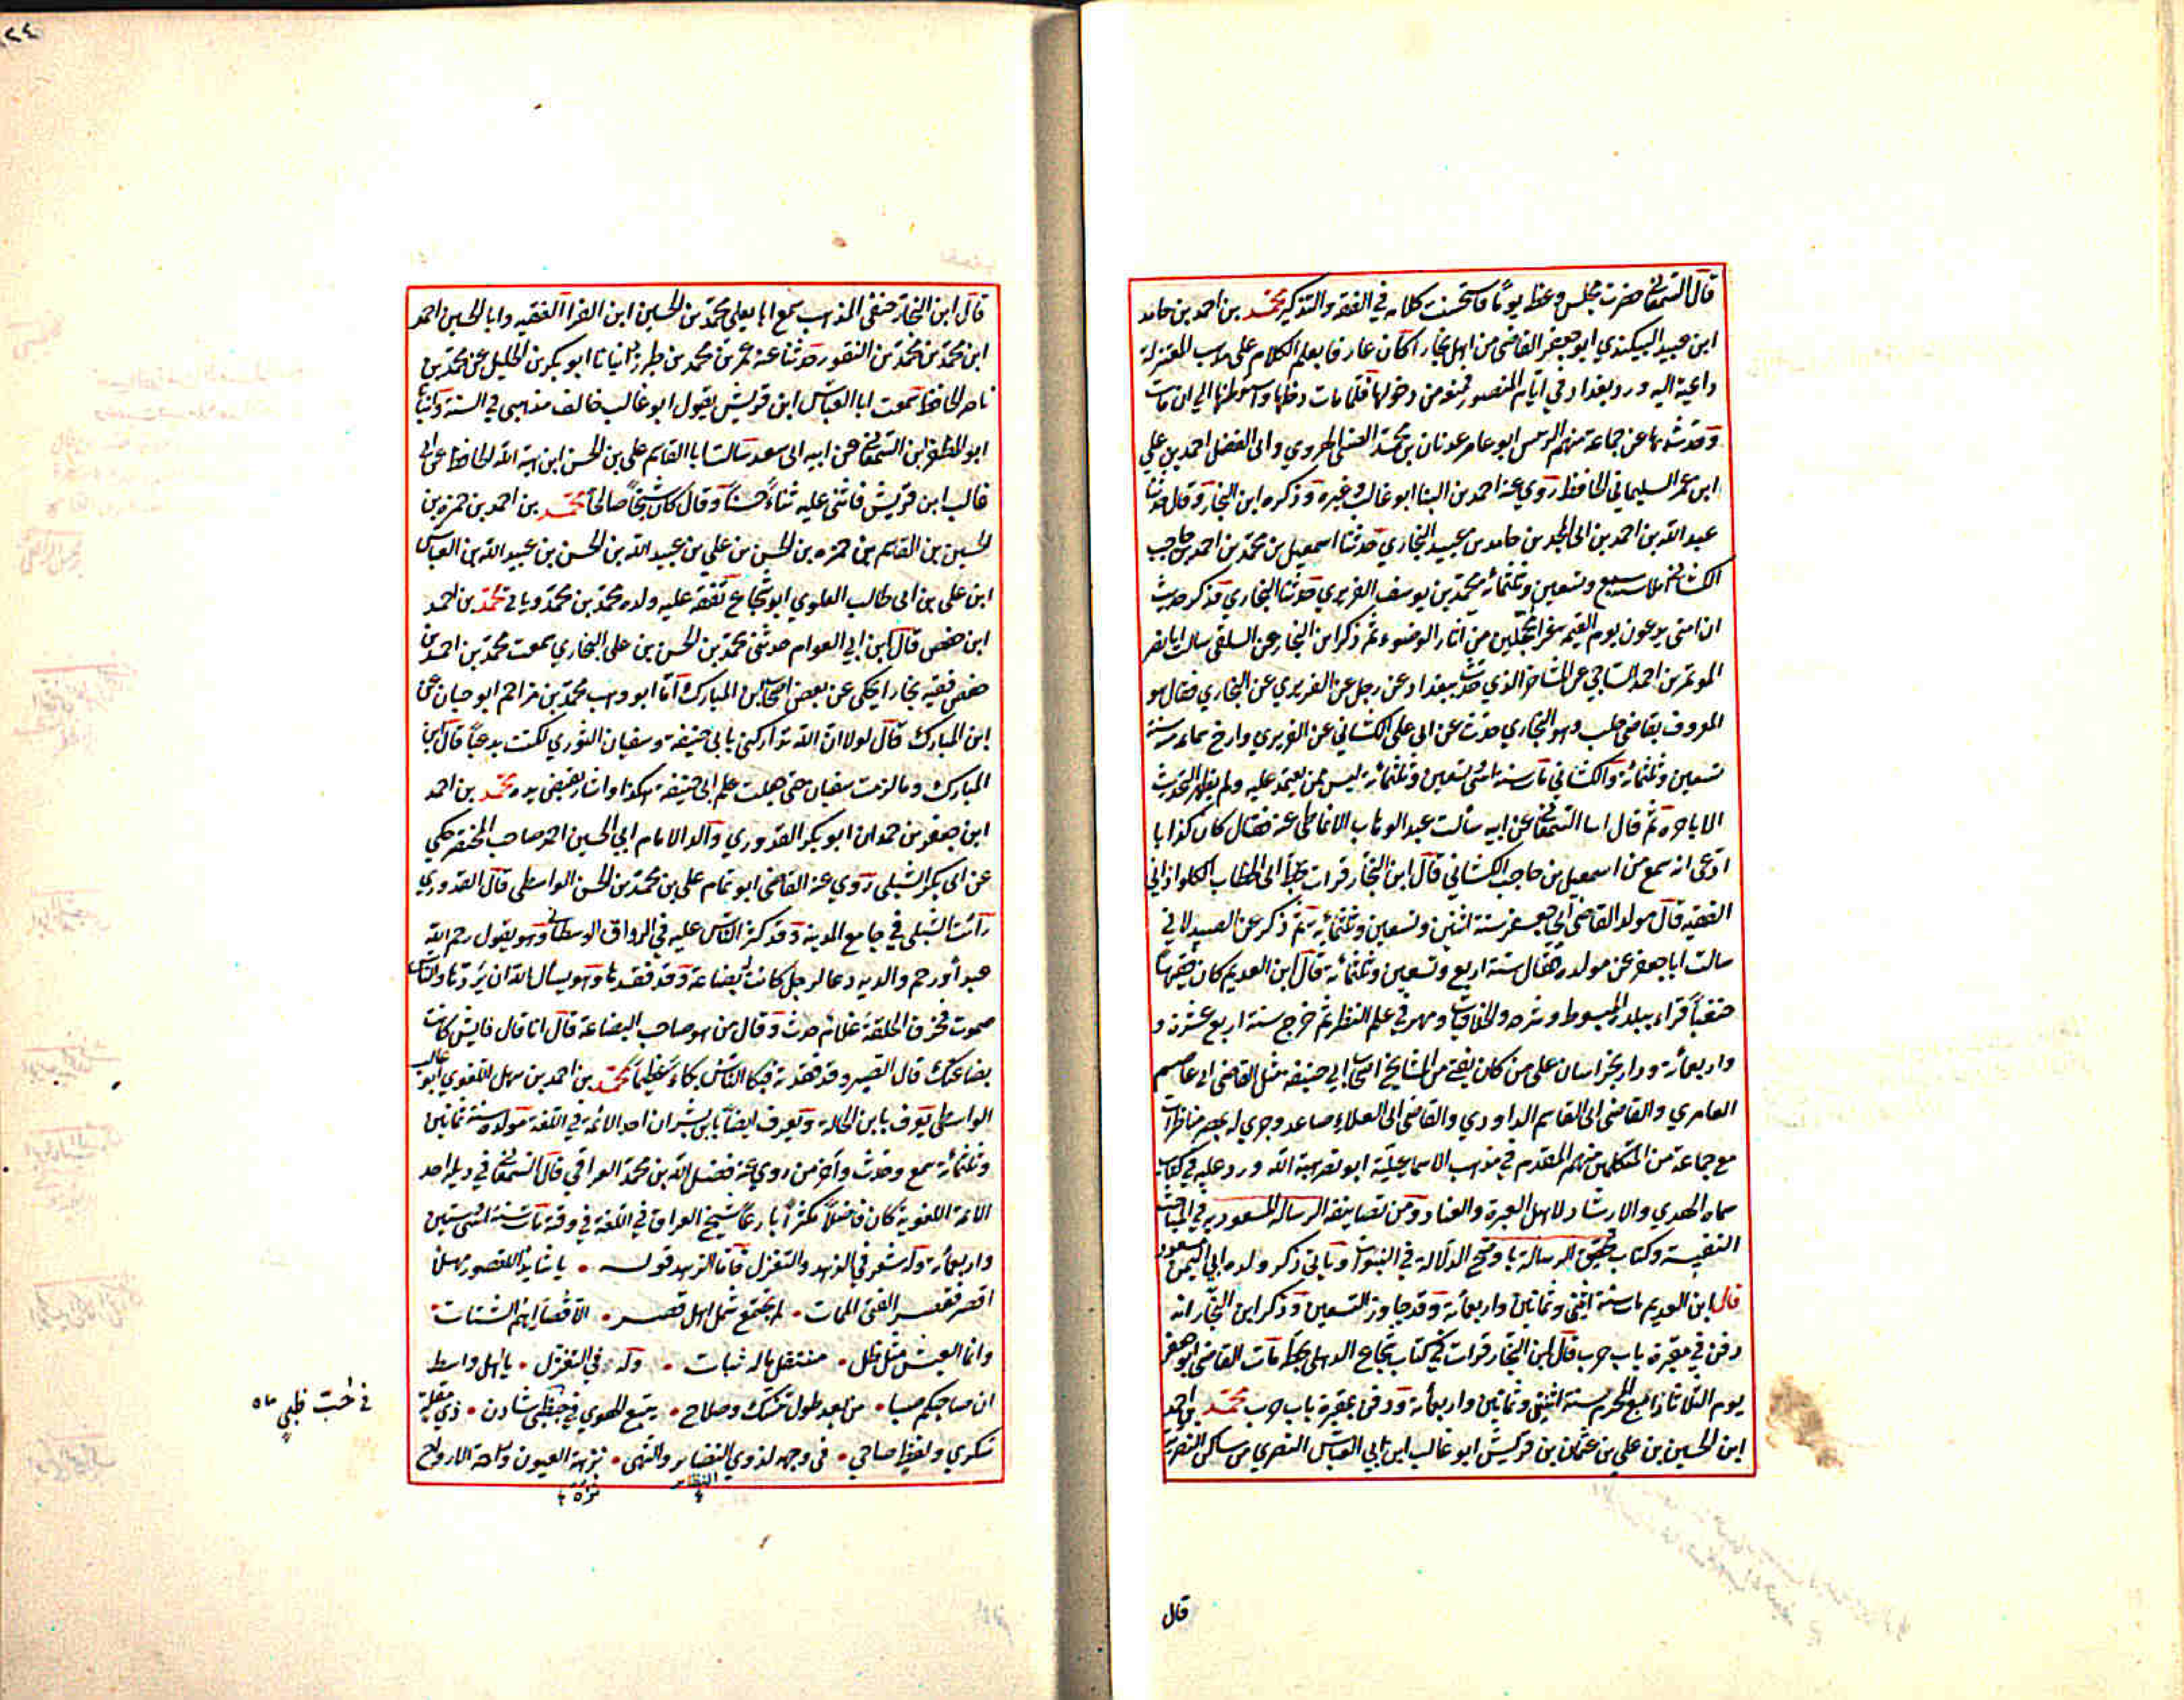 قال السمعاني حضرت مجلس وعظه يوما فاستحسنت كلامه في الفقه والتذكير محمد بن احمد بن حامد
ابن عبيد البيكندي ابو جعفر القاضي من اهل بخارا كان عارفا بعلم الكلام على مذهب المعتزلة
داعية اليه ورد بغداد في ايام المنصور فمنع من دخولها فلما مات دخلها واستوطنها الى ان مات
وحدث بها عن جماعة منهم الرئيس ابو عامر عدنان بن محمد الضبي الهروي وابي الفضل احمد بن علي
ابن عمر السليماني الحافظ روي عنه احمد بن البنا ابو غالب وغيره وذكره ابن النجار وقال حدثنا
عبد الله بن احمد بن ابي المجد بن حامد بن عبيد البخاري حدثنا اسمعيل بن محمد بن احمد بن حاجب
الكشاني املا سبع وتسعين وثلثمائة محمد بن يوسف الفربري حدثنا البخاري فذكر حديث
ان امتي يدعون يوم القيمة غرا محجلين من اثار الوضوء ثم ذكر ابن النجار عن السلفي سالت ابا نصر
الموتمن بن احمد الساجي عن المشايخ الذي حدث ببغداد عن رجل عن الفربري عن البخاري فقال هو
المعروف بقاضي حلب وهو البخاري حدث عن ابي علي الكشاني عن الفربري وارخ سماعه سنة
تسعين وثلثمائة والكشاني مات سنة اثني تسعين وثلثمائة ليس ممن يعتمد عليه ولم يظهر التحديث
الا باخره ثم قال اسا السمعاني عن ابيه سألت عبد الوهاب الانماطي عنه فقال كان كذابا
ادعى انه سمع من اسمعيل بن حاجب الكشاني قال ابن النجار قرات بخط ابي الخطاب الكلواذاني
الفقيه قال مولد القاضي ابي جعفر سنة اثنين وتسعين وثلثمائة ثم ذكر عن الصيدلاني
سالت ابا جعفر عن مولده فقال سنة اربع وتسعين وثلثمائة قال ابن العديم كان فقيها
حنفيا قراء ببلده المبسوط وشرحه والخلافيات ومهر في علم النظر ثم خرج سنة اربع عشرة و
واربعمائة ودار بخراسان على من كان بقي من المشايخ اصحاب ابي حنيفة مثل القاضي ابي عاصم
العامري والقاضي ابي القاسم الداودي والقاضي ابي العلاء صاعد وجرى له بمصر مناظرات
مع جماعة من المتكلمين منهم المقدم في مذهب الاسماعيلية ابو نصر هبة الله ورد عليه في كتاب
سماه الهدي والارشاد لاهل الحيرة والعناد ومن تصانيفه الرسالة المسعودية في المباحث
النفيسة وكتاب تحقيق الرسالة باوضح الدلالة في النبوات وياتي ذكر ولده ابي اليمن مسعود
قال ابن العديم مات سنة اثني وثمانين واربعمائة وقد جاوز التسعين وذكر ابن النجار انه
دفن في مقبرة باب حرب قال ابن النجار قرات في كتاب شجاع الذهلي بخطه مات القاضي ابو جعفر
يوم الثلاثا رابع المحرم سنة اثنين وثمانين واربعمائة ودفن بمقبرة باب حرب محمد بن احمد
ابن الحسين بن علي بن عثمان بن قريش ابو غالب ابن ابي العباس النصري من ساكن النصرية
قال
قال ابن النجار حنفي المذهب سمع ابا يعلى محمد بن الحسين ابن الفرا الفقيه وابا الحسين احمد
ابن محمد بن محمد بن النقور حدثنا عنه عمر بن محمد بن طبرزد انبانا ابو بكر بن الخليل عن محمد بن
ناصر الحافظ سمعت ابا العباس ابن قريش يقول ابو غالب خالف مذهبي في السنة وانبأ
ابو المظفر ابن السمعاني عن ابيه ابي سعد سالت ابا القاسم علي بن الحسن ابن هبة الله الحافظ عن ابي
غالب ابن قريش فاثنى عليه ثناء حسنا وقال كان شيخا صالحا محمد بن احمد بن حمزه بن
الحسين بن القاسم بن حمزه بن الحسن بن علي بن عبيد الله بن الحسن بن عبيد الله بن العباس
ابن علي بن ابي طالب العلوي ابو شجاع تفقه عليه ولده محمد بن محمد وياتي محمد بن احمد
ابن حفص قال ابن ابي العوام حدثني محمد بن الحسن بن علي البخاري سمعت محمد بن احمد بن
حفص فقيه بخارا يحكي عن بعض اصحاب ابن المبارك انا ابو وهب محمد بن مزاحم ابو حيان عن
ابن المبارك قال لولا ان الله تداركني بابي حنيفة وسفيان الثوري لكنت بدعيا قال ابن
المبارك وما لزمت سفيان حتى جعلت علم ابي حنيفة هكذا واشار بقبض يده محمد بن احمد
ابن جعفر بن حمدان ابو بكر القدوري والد الامام ابي الحسين احمد صاحب المختصر حكي
عن ابي بكر الشبلي روي عنه القاضي ابو تمام علي بن محمد بن الحسن الواسطي قال القدوري
رأيت الشبلي في جامع المدينة وقد كثر الناس عليه في الرواق الوسطاني وهو يقول رحم الله
عبدا ورحم والديه دعا لرجل كانت له بضاعة وقد فقدها وهو يسأل الله ان يردها والناس
صموت فخرق الحلقة غلام حدث وقال من هو صاحب البضاعة قال انا قال فايش كانت
بضاعتك قال الصبر وقد فقدته فبكا الناس بكاء عظيما محمد بن احمد بن سهل اللغوي ابو غالب
الواسطي يعرف بابن الخالة ويعرف ايضا بابن بشران احد الائمة في اللغة مولده سنة ثمانين
وثلثمائة سمع وحدث واخر من روى عنه فضل الله بن محمد العراقي قال السمعاني في ذيله احد
الائمة اللغوية كان فاضلا مكثرا بارعا شيخ العراق في اللغة في وقته مات سنة اثنين وستين
واربعمائة وله شعر في الزهد والتغزل فاما الزهد قوله • يا شايد القصور مهلا
اقصر فقصر الفتى الممات • لم يجتمع شمل اهل قصر • الا قصاراهم الشتات •
وانما العيش مثل ظل • منتقل ماله ثبات • وله في التغزل • يا اهل واسط
ان صاحبكم صبا • من بعد طول تمسك وصلاح • يتبع الهوي في حظي شادن • ذي مقلة
سكري ولفظ صاحي • في وجهه لذوي البصاير والنهى • نزهة العيون وراحة الارواح
في حب ظبي
النظاير